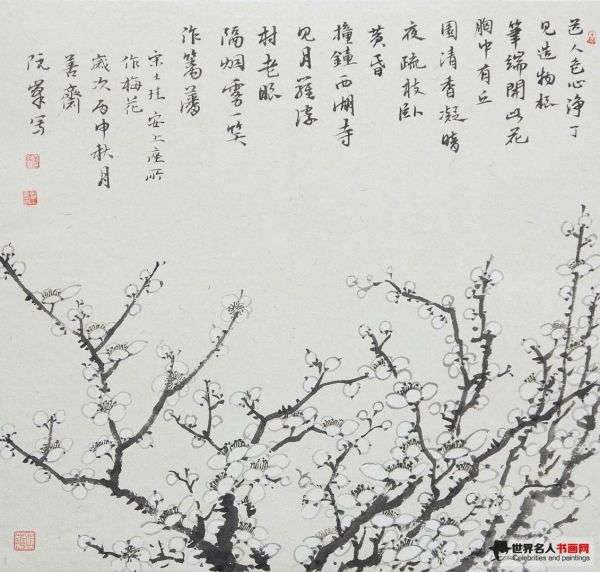 道人色心淨了
見造物根
筆端開此花
胸中有丘
園清香凝暗
夜疏枝卧
黄昏
撞鐘西湖寺
見月羅浮
村老眼
隔烟雾一笑
作篱藩
宋士珪安上座所
作梅花
歲次丙申秋月
善齋
阮写
世界名人书画网
Celebrities and paintings